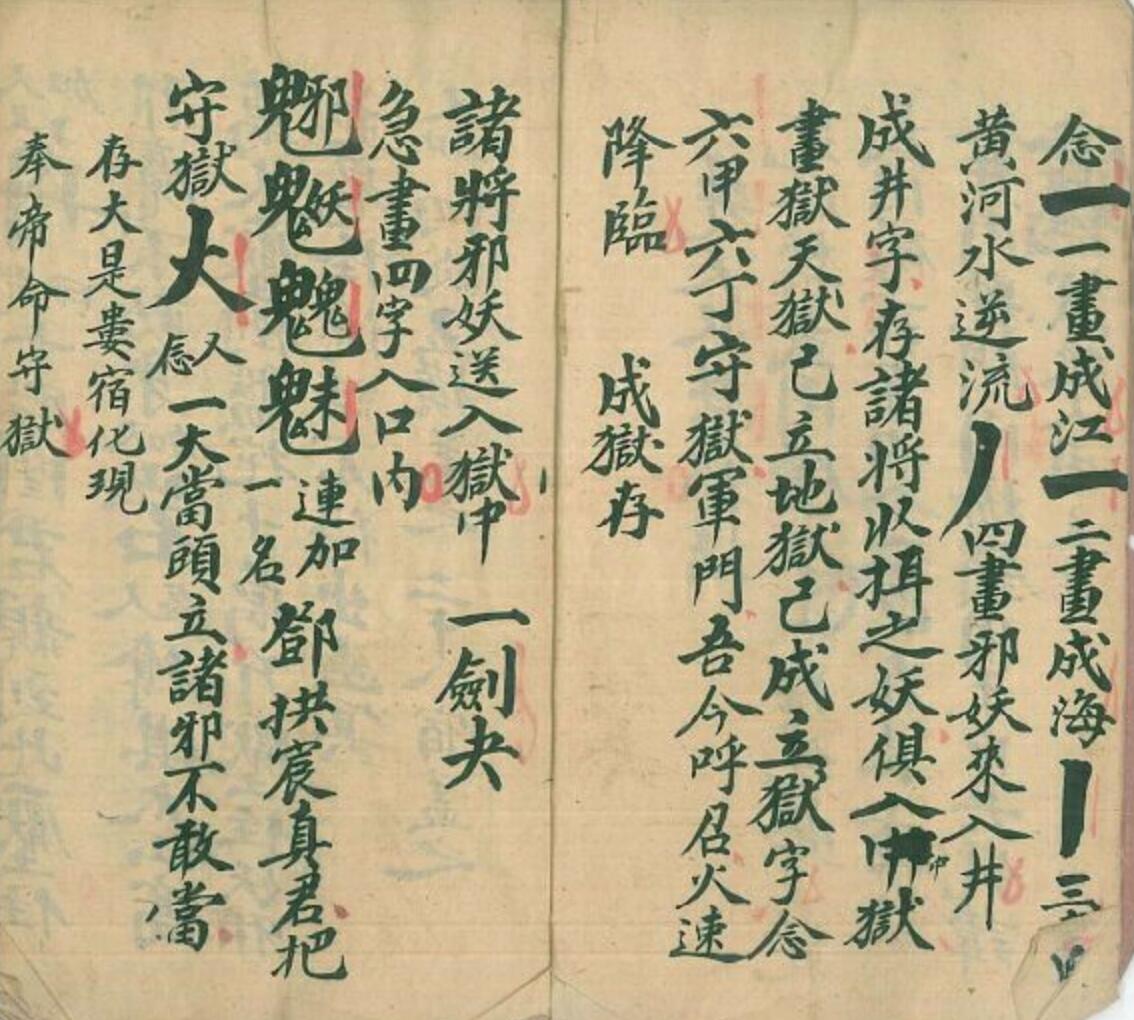 念一一畫成江一二畫成海丨三
黃河水逆流丿四畫邪妖來入井
成井字存諸將收捐之妖俱入中獄
畫獄天獄已立地獄已成立獄字念
六甲六丁守獄軍門吾今呼召火速
降臨 成獄存
諸將邪妖送入獄中 一劍夬
急畫四字入口内
连加一名鄧拱宸真君把
守獄大又㤪一大當頭立諸邪不敢當
存大是婁宿化現
奉帝命守獄